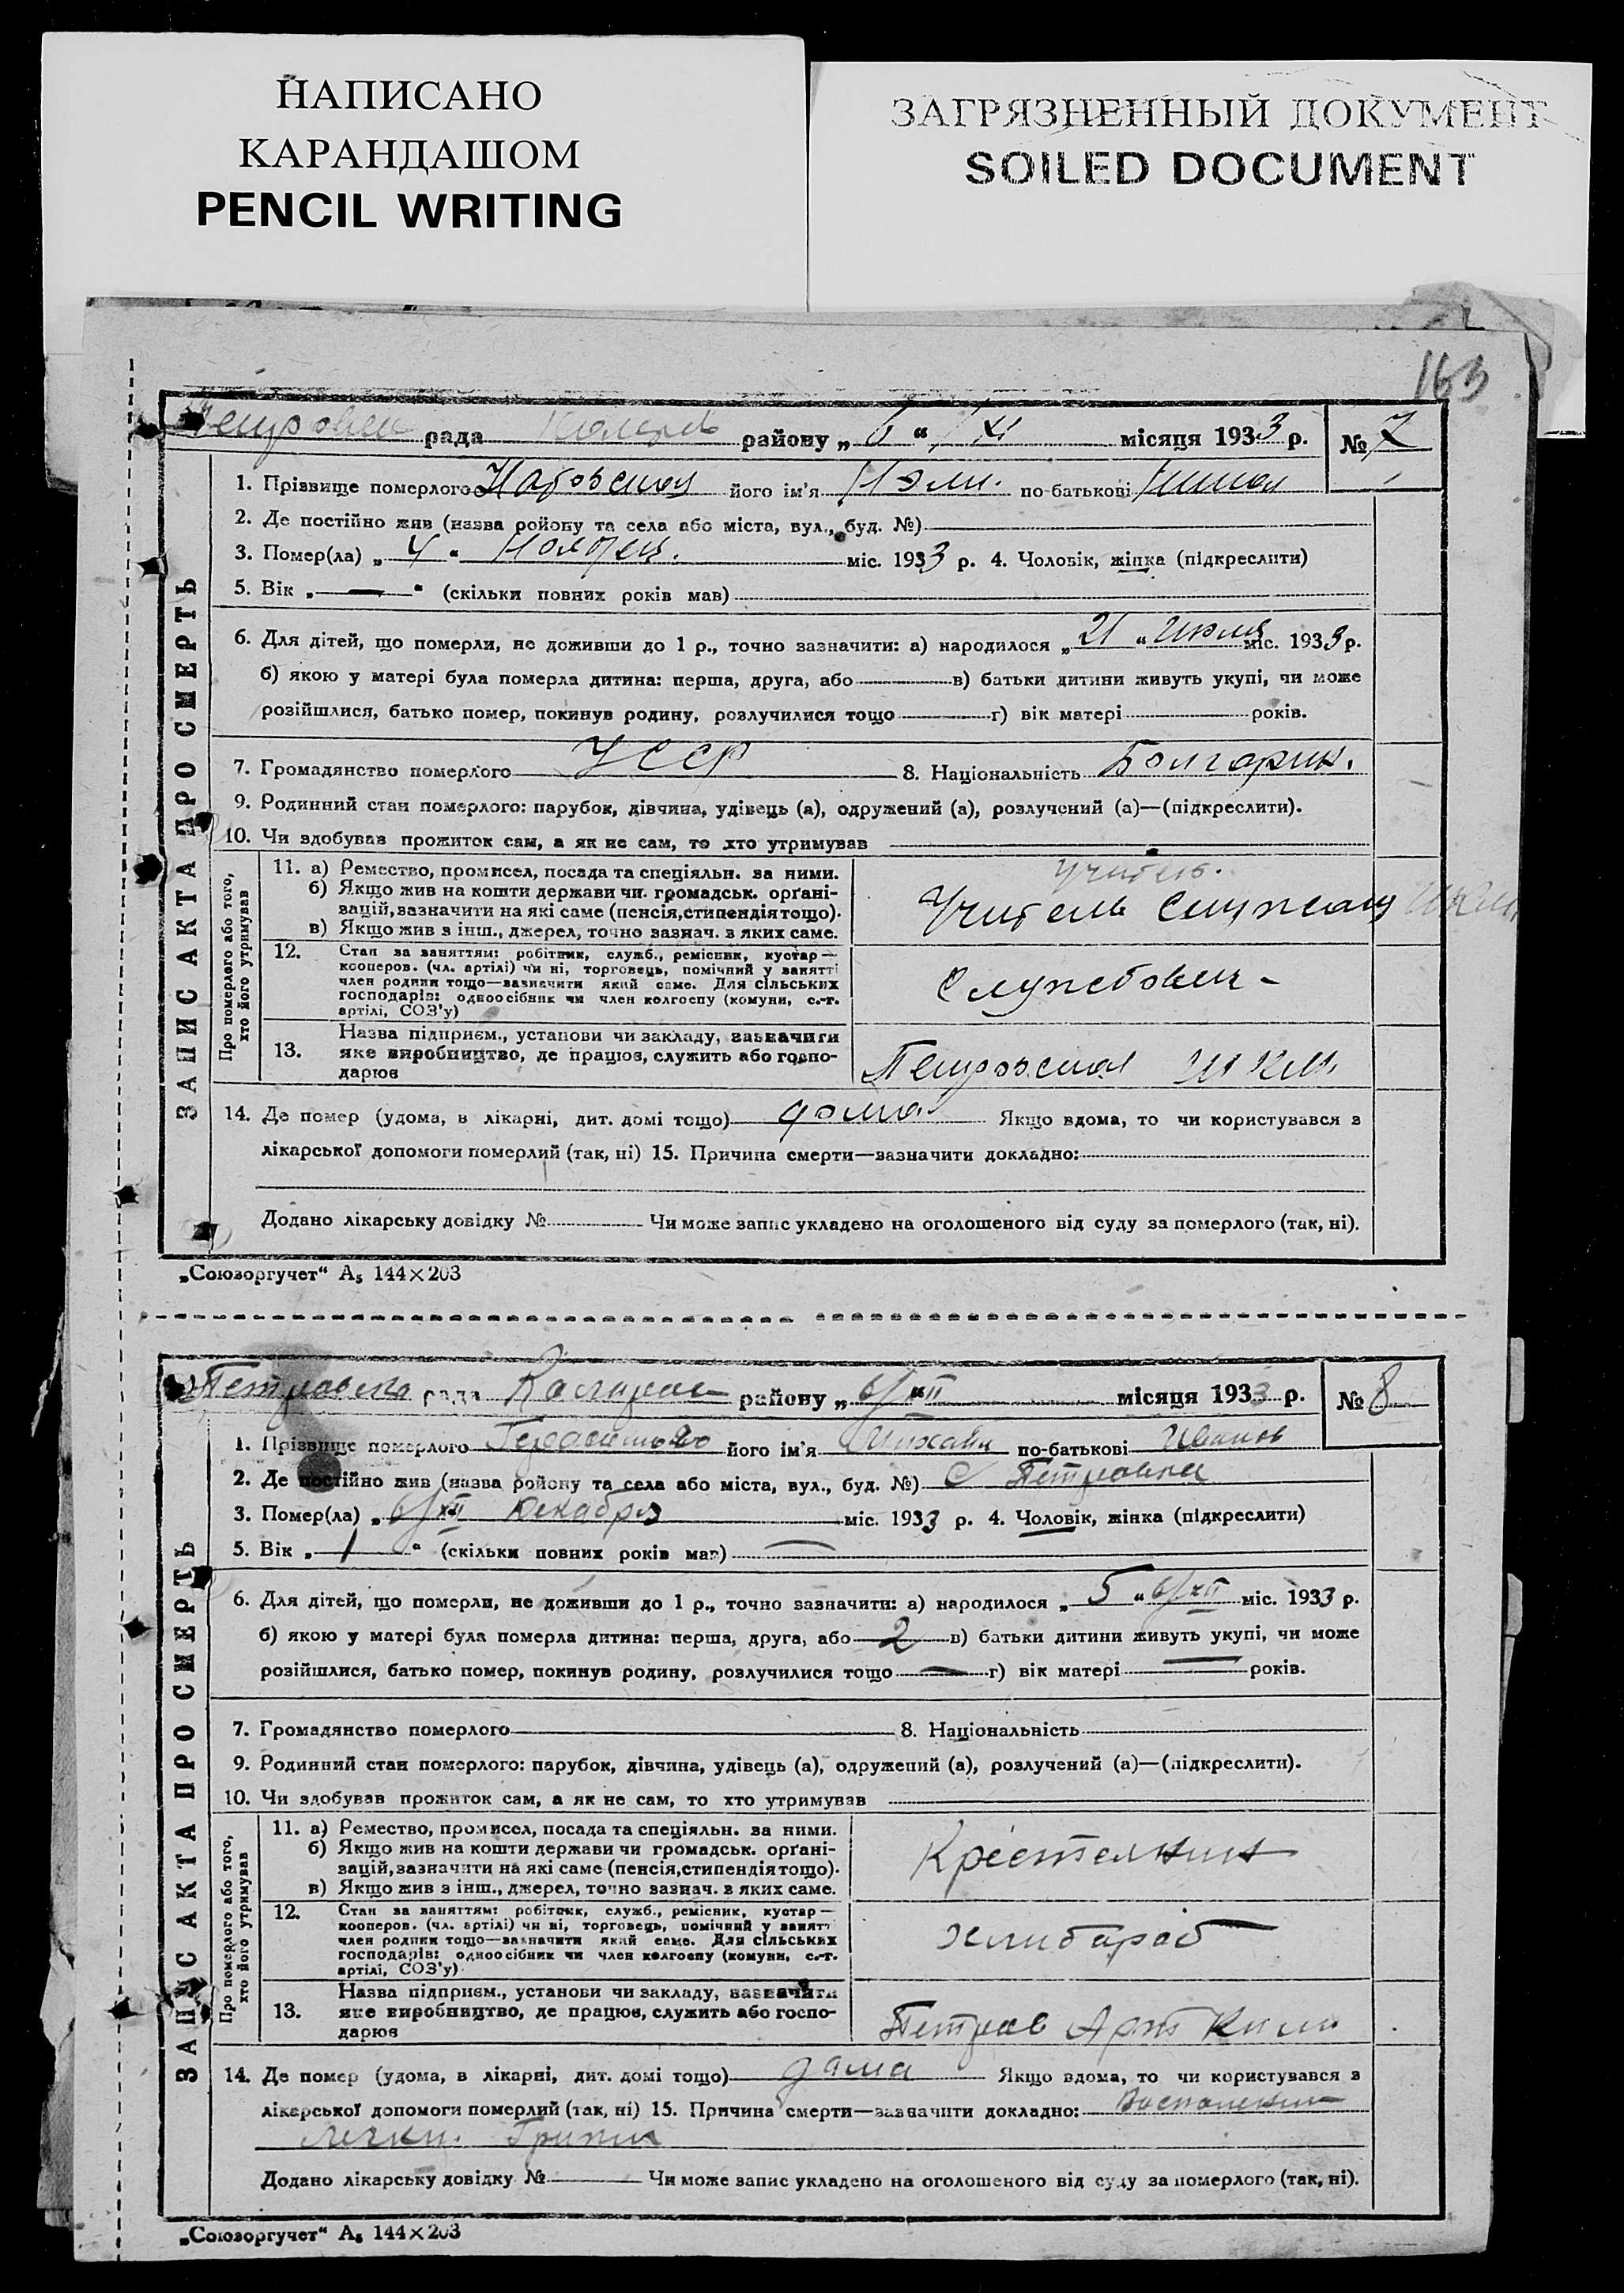 НАПИСАНО
КАРАНДАШОМ
PENCIL WRITING
ЗАГРЯЗНЕННЫЙ ДОКУМЕНТ
SOILED DOCUMENT
163
рада району „ 6 “ XI місяця 1933 р. № 7
ЗАПИС АКТА ПРО СМЕРТЬ
1. Прізвище померлого його ім'я Нэли. по-батькові
2. Де постійно жив (назва ройону та села або міста, вул., буд. №)
3. Помер(ла) „ 4 “ Ноября. міс. 1933 р. 4. Чоловік, жінка (підкреслити)
5. Вік „ — “ (скільки повних років мав)
6. Для дітей, що померли, не доживши до 1 р., точно зазначити: а) народилося „ 21 “ Июля міс. 1933 р.
б) якою у матері була померла дитина: перша, друга, або в) батьки дитини живуть укупі, чи може
розійшлися, батько помер, покинув родину, розлучилися тощо г) вік матері років.
7. Громадянство померлого УССР 8. Національність Болгарин.
9. Родинний стан померлого: парубок, дівчина, удівець (а), одружений (а), розлучений (а)—(підкреслити).
10. Чи здобував прожиток сам, а як не сам, то хто утримував
Про померлого або того, хто його утримував
11. а) Ремество, промисел, посада та спеціяльн. за ними.
б) Якщо жив на кошти держави чи громадськ. орґані-
зацій, зазначити на які саме (пенсія, стипендія тощо).
в) Якщо жив з інш., джерел, точно зазнач. з яких саме.
учитель.
Учитель
12. Стан за заняттям: робітник, служб., ремісник, кустар—
кооперов. (чл. артілі) чи ні, торговець, помічний у занятті
член родини тощо—зазначити який саме. Для сільських
господарів: одноосібник чи член колгоспу (комуни, с.-г.
артілі, СОЗ'у)
Службовец-
13. Назва підприєм., установи чи закладу, зазначити
яке виробництво, де працює, служить або госпо-
дарює
Петровская ШКМ.
14. Де помер (удома, в лікарні, дит. домі тощо) дома Якщо вдома, то чи користувався з
лікарської допомоги померлий (так, ні) 15. Причина смерти—зазначити докладно:
Додано лікарську довідку № Чи може запис укладено на оголошеного від суду за померлого (так, ні).
„Союзоргучет“ А₅ 144×203
рада району „ 6/XII місяця 1933 р. № 8
ЗАПИС АКТА ПРО СМЕРТЬ
1. Прізвище померлого його ім'я Михаил по-батькові Иванов
2. Де постійно жив (назва ройону та села або міста, вул., буд. №) с Петровка
3. Помер(ла) „ 6/XII Декабря міс. 1933 р. 4. Чоловік, жінка (підкреслити)
5. Вік „ 1 “ (скільки повних років мав) —
6. Для дітей, що померли, не доживши до 1 р., точно зазначити: а) народилося „ 5 “ 6/XII міс. 1933 р.
б) якою у матері була померла дитина: перша, друга, або 2 в) батьки дитини живуть укупі, чи може
розійшлися, батько помер, покинув родину, розлучилися тощо — г) вік матері — років.
7. Громадянство померлого 8. Національність
9. Родинний стан померлого: парубок, дівчина, удівець (а), одружений (а), розлучений (а)—(підкреслити).
10. Чи здобував прожиток сам, а як не сам, то хто утримував
Про померлого або того, хто його утримував
11. а) Ремество, промисел, посада та спеціяльн. за ними.
б) Якщо жив на кошти держави чи громадськ. орґані-
зацій, зазначити на які саме (пенсія, стипендія тощо).
в) Якщо жив з інш., джерел, точно зазнач. з яких саме.
12. Стан за заняттям: робітник, служб., ремісник, кустар—
кооперов. (чл. артілі) чи ні, торговець, помічний у занятті
член родини тощо—зазначити який саме. Для сільських
господарів: одноосібник чи член колгоспу (комуни, с.-г.
артілі, СОЗ'у)
хлибароб
13. Назва підприєм., установи чи закладу, зазначити
яке виробництво, де працює, служить або госпо-
дарює
Петров Арт
14. Де помер (удома, в лікарні, дит. домі тощо) дома Якщо вдома, то чи користувався з
лікарської допомоги померлий (так, ні) 15. Причина смерти—зазначити докладно:
Грипп
Додано лікарську довідку № Чи може запис укладено на оголошеного від суду за померлого (так, ні).
„Союзоргучет“ А₅ 144×203